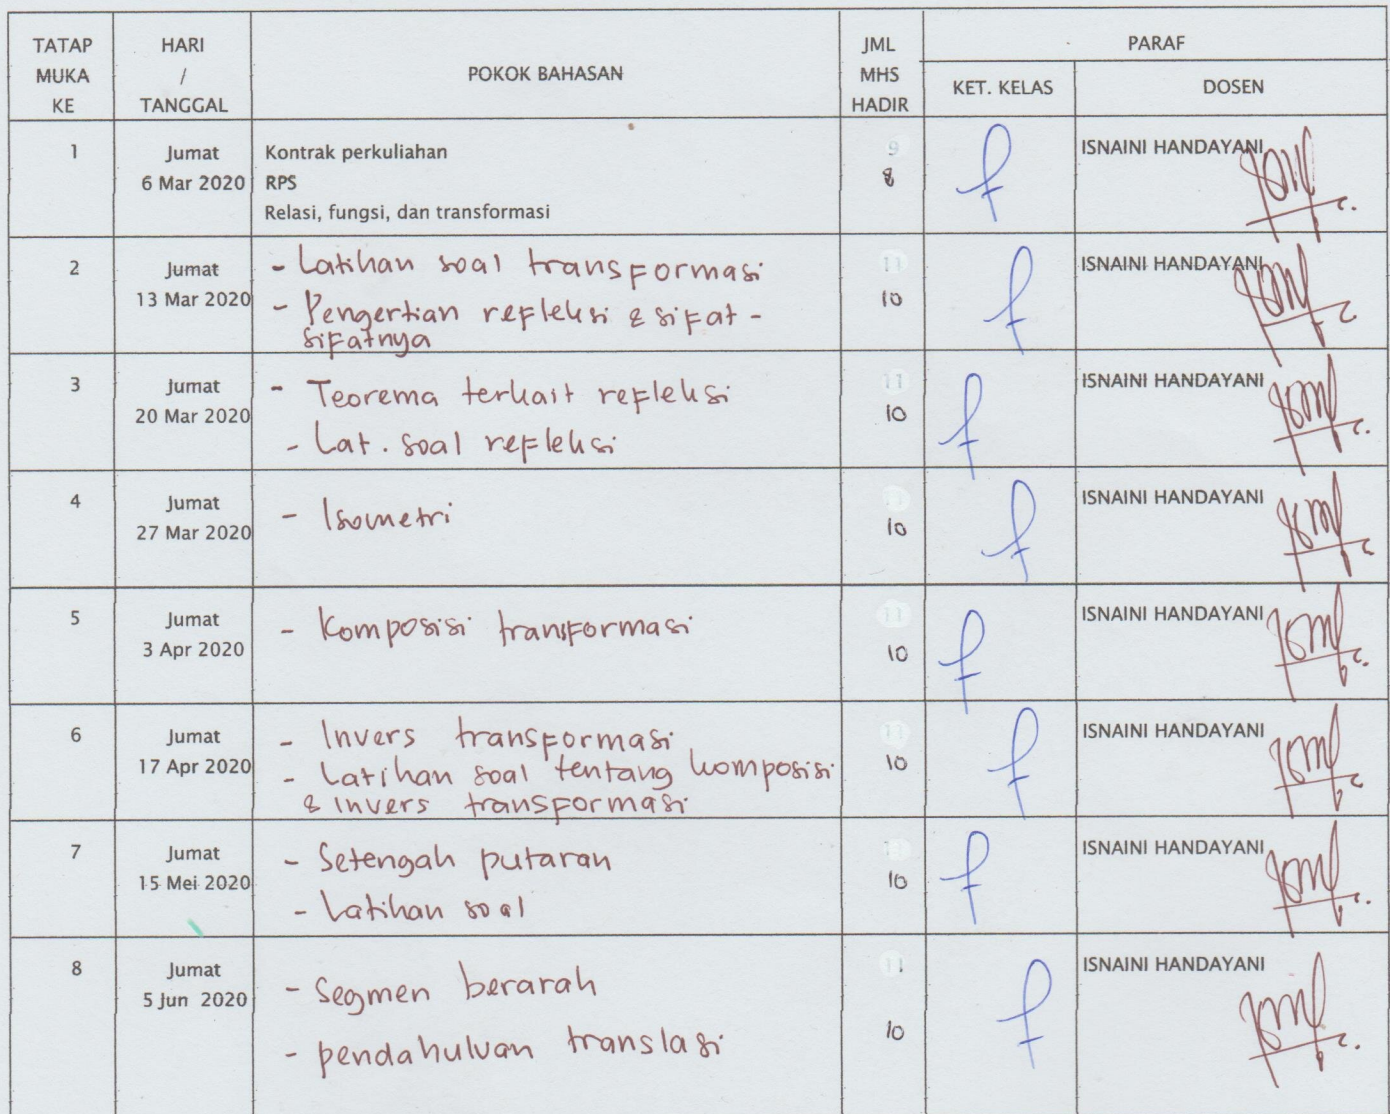 TATAP MUKA KE
HARI / TANGGAL
POKOK BAHASAN
JML MHS HADIR
PARAF
KET. KELAS
DOSEN
1
Jumat
6 Mar 2020
Kontrak perkuliahan
RPS
Relasi, fungsi, dan transformasi
9
8
ISNAINI HANDAYANI
2
Jumat
13 Mar 2020
- Latihan soal transformasi
- Pengertian refleksi & sifat -
sifatnya
11
10
ISNAINI HANDAYANI
3
Jumat
20 Mar 2020
- Teorema terkait refleksi
- Lat. soal refleksi
11
10
ISNAINI HANDAYANI
4
Jumat
27 Mar 2020
- Isometri
11
10
ISNAINI HANDAYANI
5
Jumat
3 Apr 2020
- Komposisi transformasi
11
10
ISNAINI HANDAYANI
6
Jumat
17 Apr 2020
- Invers transformasi
- Latihan soal tentang komposisi
& invers transformasi
11
10
ISNAINI HANDAYANI
7
Jumat
15 Mei 2020
- Setengah putaran
- Latihan soal
10
ISNAINI HANDAYANI
8
Jumat
5 Jun 2020
- Segmen berarah
- pendahuluan translasi
11
10
ISNAINI HANDAYANI